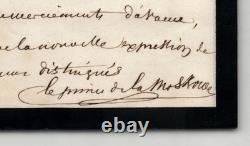 remerciements d'avance,
la nouvelle expression de
distingués
le prince de la Moskowa
© 123